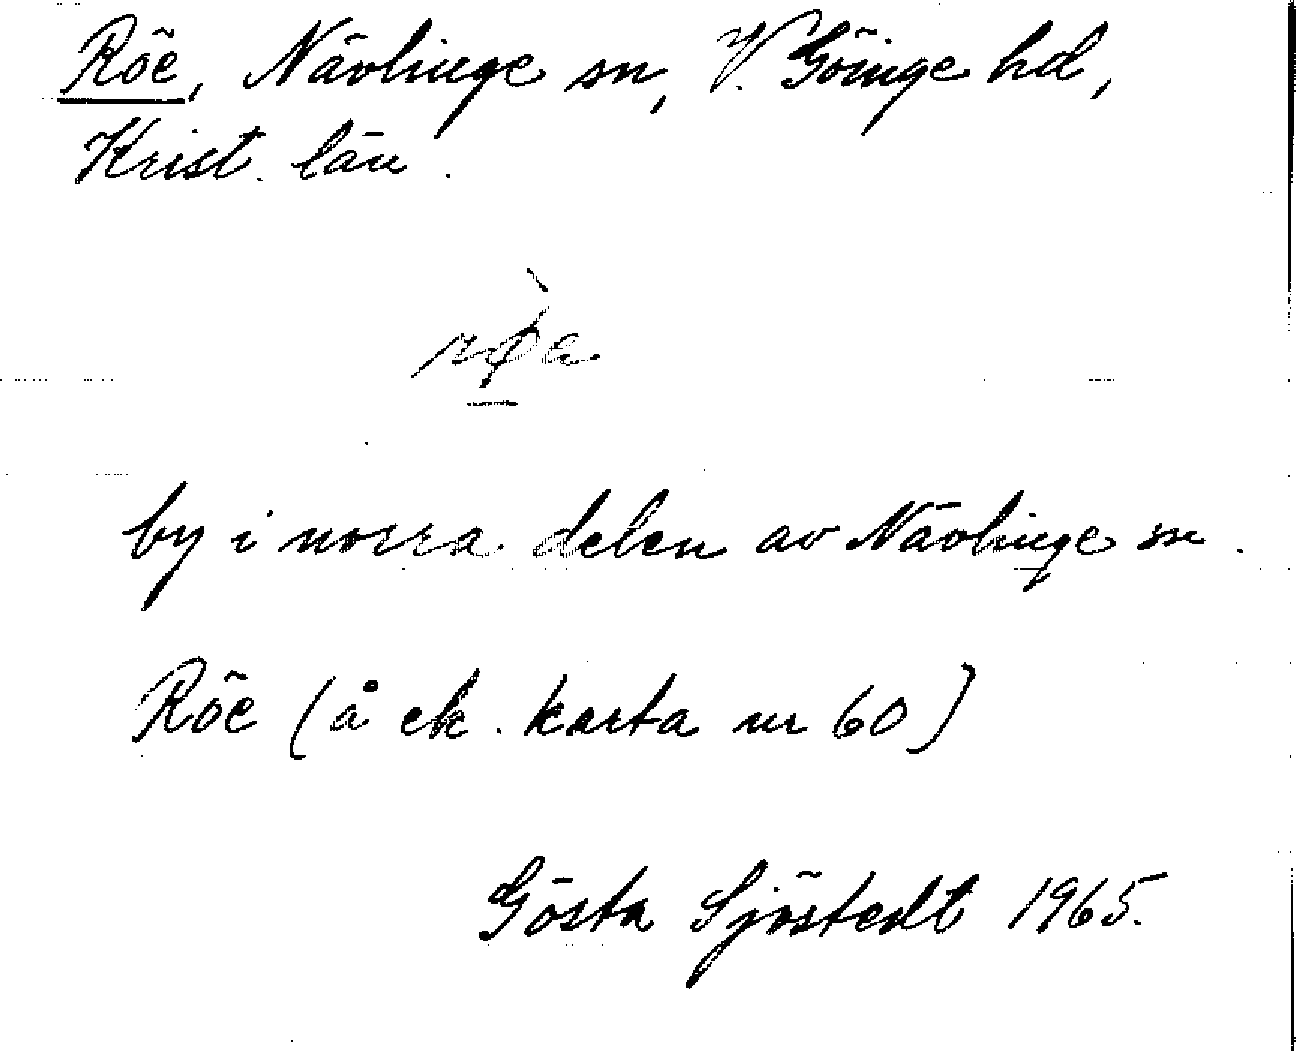 Röe, Nävlinge sn, V. Göinge hd,
Krist. län.
by i norra delen av Nävlinge sn.
Röe (å ek. karta nr 60)
Gösta Sjöstedt 1965.